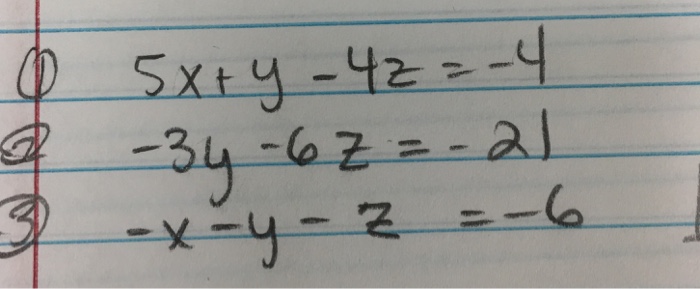 ① 5x+y-4z=-4
② -3y-6z=-21
③ -x-y-z=-6